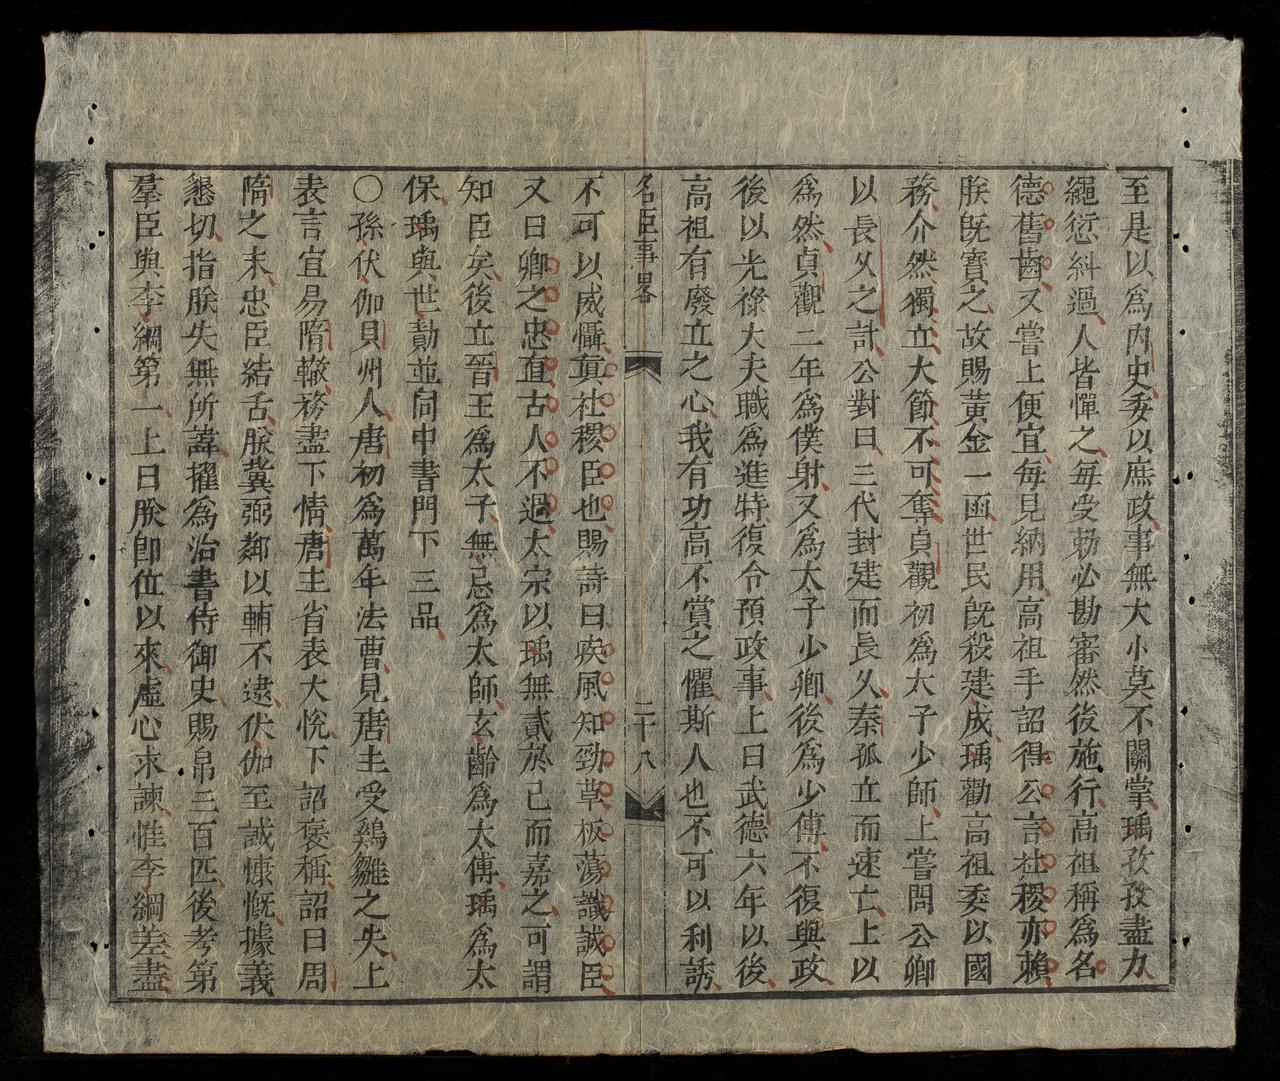 至是以爲內史委以庶政事無大小莫不關掌瑀孜孜盡力
繩愆糾過人皆憚之每受勅必勘審然後施行高祖稱爲名
德舊齒又嘗上便宜每見納用高祖手詔得公言社稷亦賴
朕旣寶之故賜黃金一函世民旣殺建成瑀勸高祖委以國
務介然獨立大節不可奪貞觀初為太子少師上嘗問公卿
以長久之計公對曰三代封建而長久秦孤立而速亡上以
爲然貞觀二年爲僕射又爲太子少卿後爲少傳不復與政
後以光祿大夫職爲進特復令預政事上曰武德六年以後
高祖有廢立之心我有功高不賞之懼斯人也不可以利誘
名臣事畧
二十八
不可以威懾眞社稷臣也賜詩曰疾風知勁草板蕩識誠臣
又曰卿之忠直古人不過太宗以瑀無貳於己而嘉之可謂
知臣矣後立晉王爲太子無忌爲太師玄齡爲太傅瑀爲太
保瑀與世勣並同中書門下三品
〇孫伏伽貝州人唐初爲萬年法曹見唐主受鷂雛之失上
表言宜易隋轍務盡下情唐主省表大悅下詔褒稱詔曰周
隋之末忠臣結舌朕冀弼鄰以輔不逮伏伽至誠慷慨據義
懇切指朕失無所諱擢爲治書侍御史賜帛三百匹後考第
羣臣與李綱第一上曰朕卽位以來虛心求諫惟李綱差盡